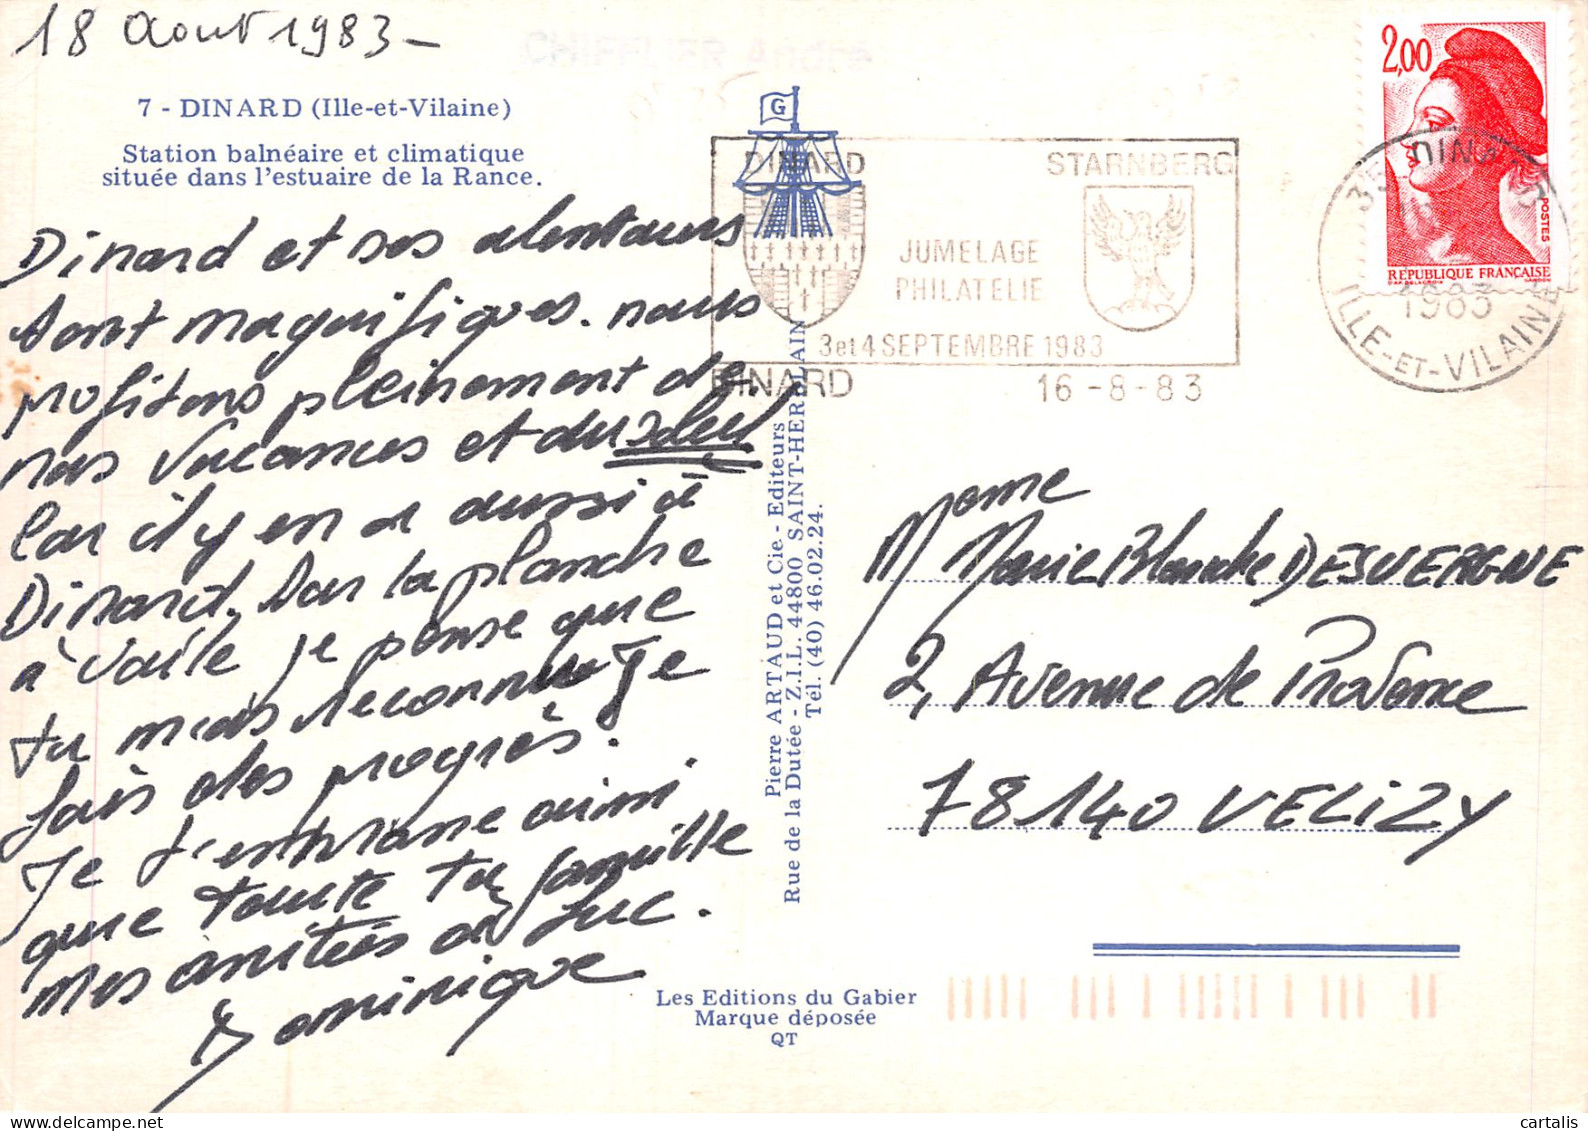 18 Aout 1983 -
CHIFFLIER André
7 - DINARD (Ille-et-Vilaine)
Station balnéaire et climatique
située dans l'estuaire de la Rance.
Dinard et ses alentours
sont magnifiques. nous
profitons pleinement de
nos vacances et du soleil
car il y en a aussi à
Dinard. Sur la planche
à voile je pense que
tu m'as reconnue je
fais des progrès.
Je t'embrasse ainsi
que toute ta famille
mes amitiés à Luc.
Dominique
G
DINARD
STARNBERG
JUMELAGE
PHILATELIE
3 et 4 SEPTEMBRE 1983
DINARD 16-8-83
2,00
POSTES
RÉPUBLIQUE FRANÇAISE
D'AP. DELACROIX GANDON
35 DINARD
1983
ILLE-ET-VILAINE
Pierre ARTAUD et Cie - Editeurs
Rue de la Dutée - Z.I.L. 44800 SAINT-HERBLAIN
Tél. (40) 46.02.24.
Mome
Marie Blanche DESVERGNE
2, Avenue de Provence
78140 VELIZY
Les Editions du Gabier
Marque déposée
QT
cartalis
delcampe.net